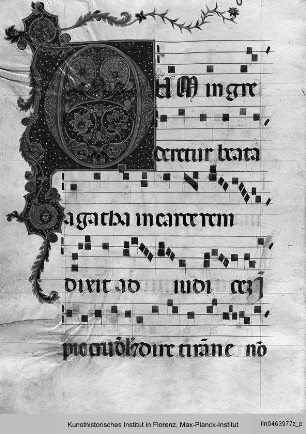 UM ingre
deretur beata
agatha in carcerem
dixit ad iudicez
dire tiranne nō
Kunsthistorisches Institut in Florenz, Max-Planck-Institut
fln0463977z_p